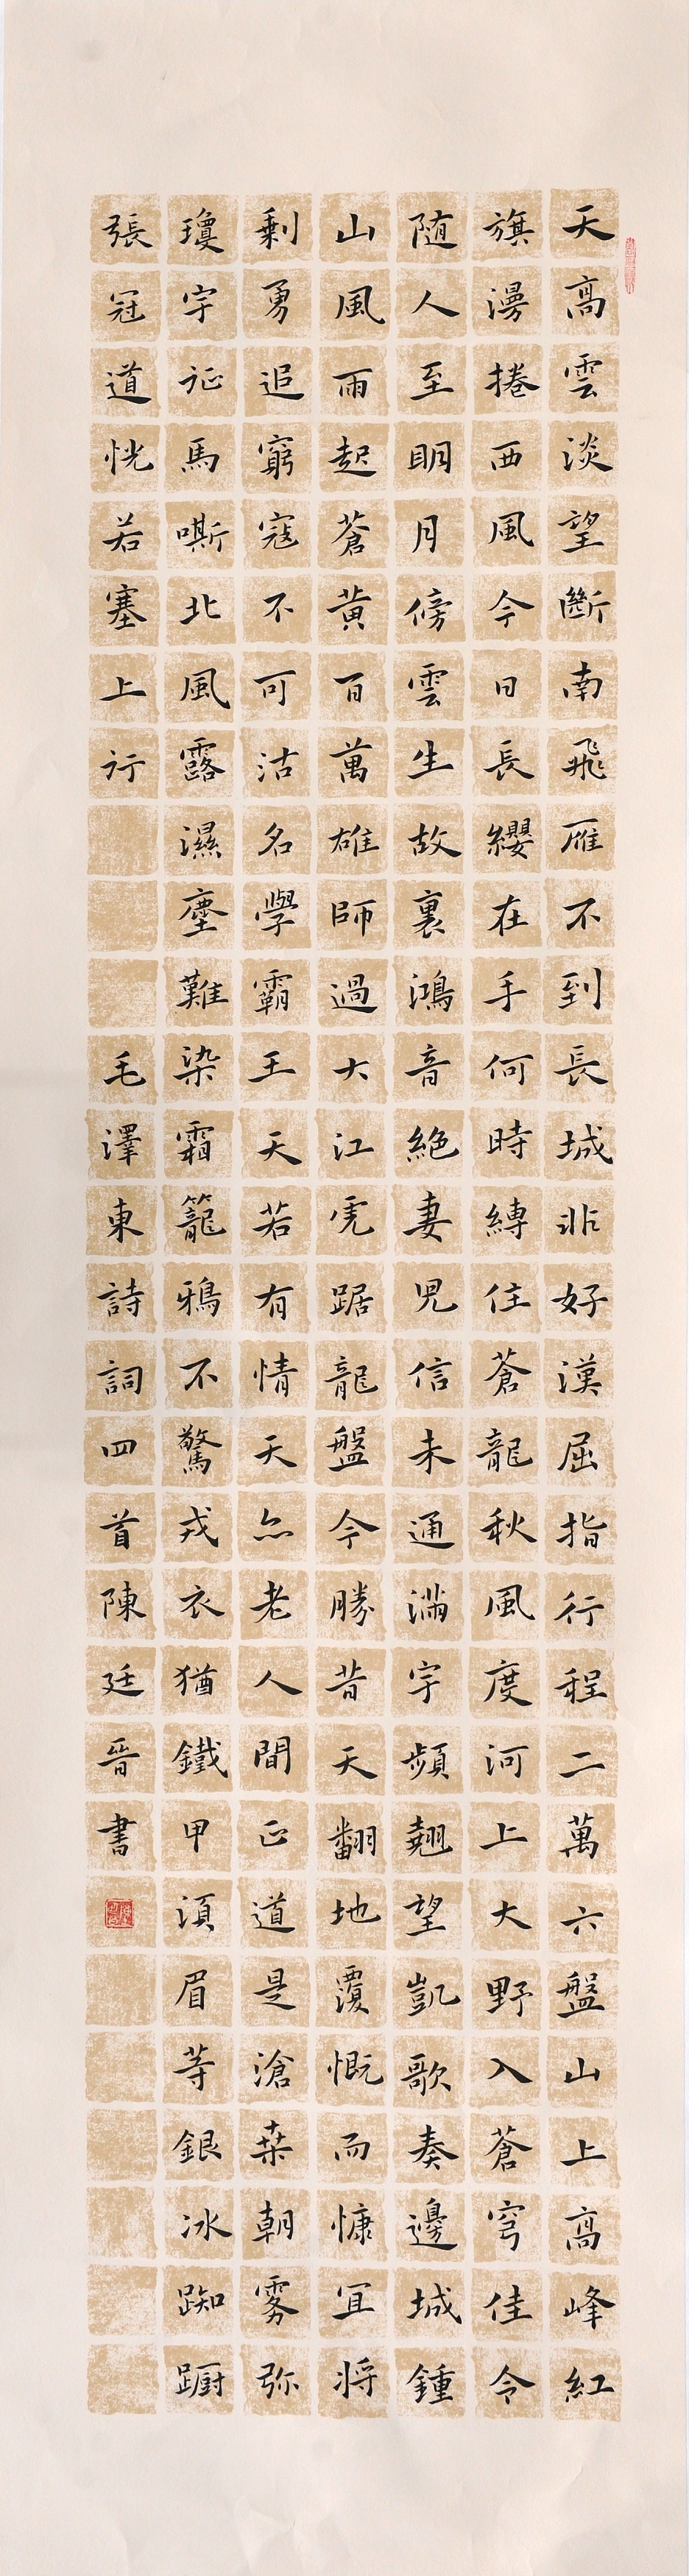 天高雲淡望斷南飛雁不到長城非好漢屈指行程二萬六盤山上高峰紅
旗漫捲西風今日長纓在手何時縛住蒼龍秋風度河上大野入蒼穹佳令
随人至明月傍雲生故裏鴻音絕妻児信未通滿宇頻翹望凱歌奏邊城鍾
山風雨起蒼黃百萬雄師過大江虎踞龍盤今勝昔天翻地覆慨而慷宜将
剩勇追窮寇不可沽名學霸王天若有情天亦老人間正道是滄桒朝雾弥
瓊宇征馬嘶北風露濕塵難染霜籠鴉不驚戎衣猶鐵甲須眉等銀冰踟躕
張冠道恍若塞上行
毛澤東詩詞四首陳廷晉書